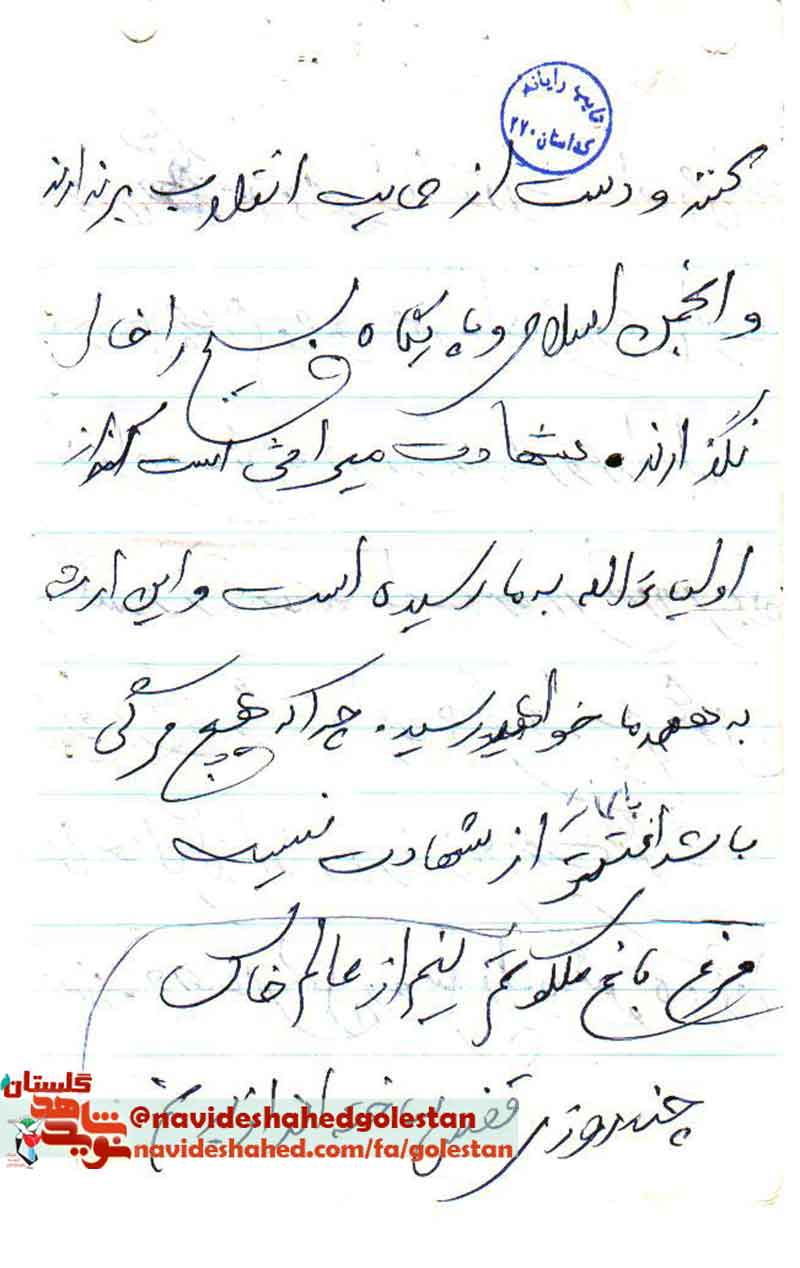 کنند و دست از حمایت انقلاب برندارند
و انجمن اسلامی و پایگاه بسیج را خالی
نگذارند. شهادت میراثی است که از
اولیاءالله به ما رسیده است و این ارث
به همه ما خواهد رسید. چرا که هیچ مرگی
با ارزش‌تر از شهادت نیست
مرغ باغ ملکوتم نیم از عالم خاک
چند روزی قفسی
گلستان
نوید شاهد
@navideshahedgolestan
navideshahed.com/fa/golestan